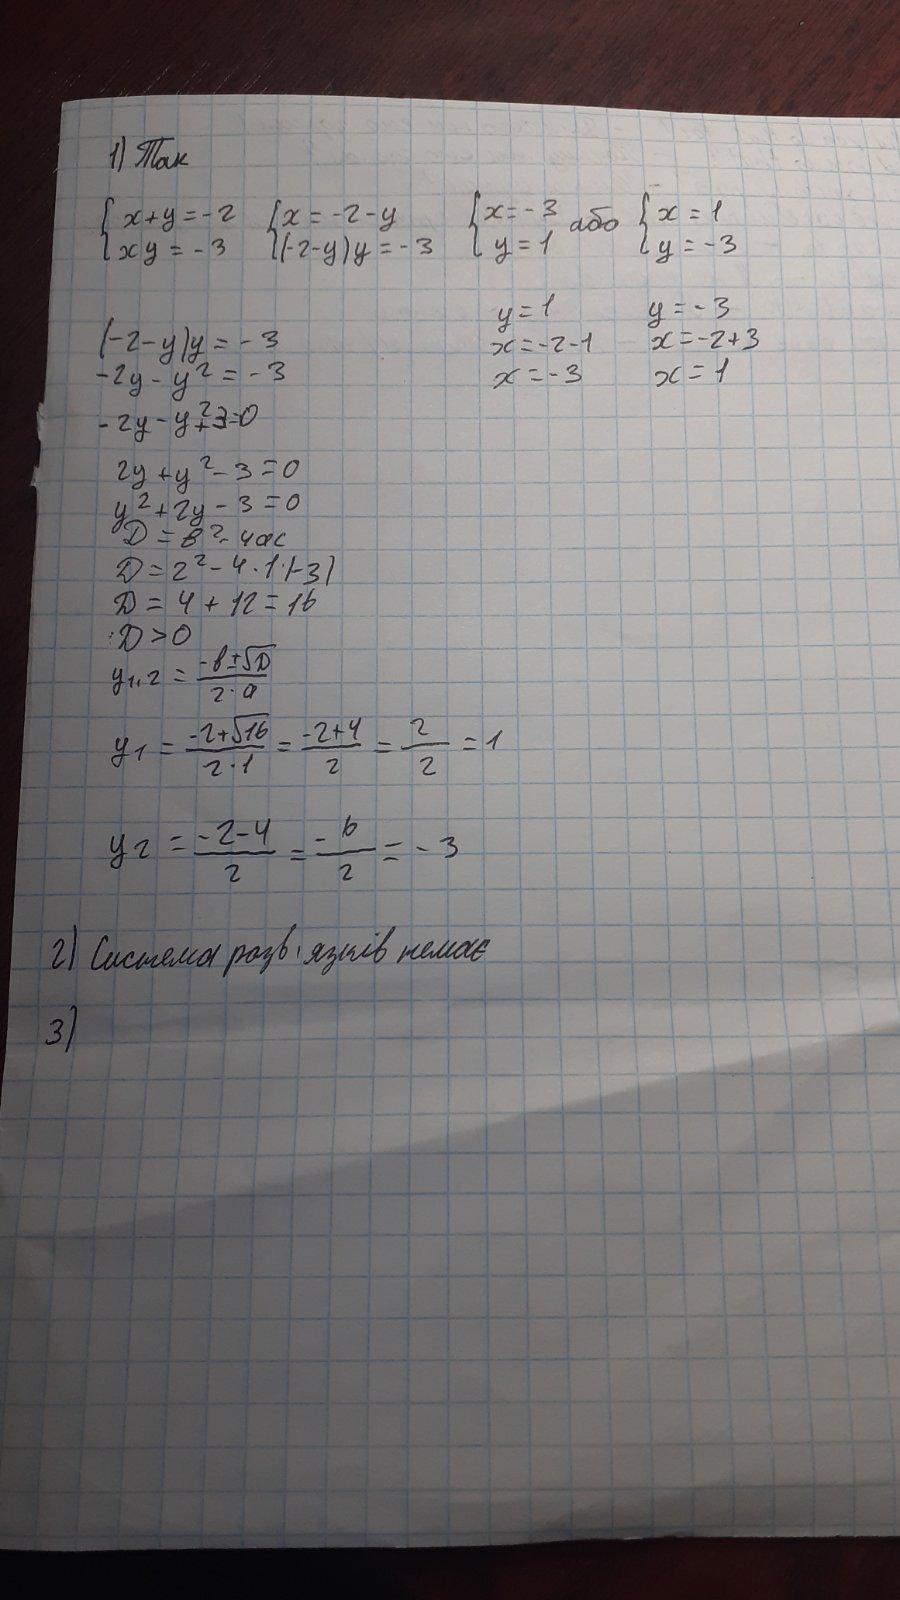 1) Так
{ x+y=-2 { x=-2-y { x=-3 або { x=1
{ xy=-3 { (-2-y)y=-3 { y=1 { y=-3
y=1 y=-3
(-2-y)y=-3 x=-2-1 x=-2+3
-2y-y²=-3 x=-3 x=1
-2y-y²+3=0
2y+y²-3=0
y²+2y-3=0
D=b²-4ac
D=2²-4·1·(-3)
D=4+12=16
D>0
y1,2 = (-b±√D)/(2·a)
y1 = (-2+√16)/(2·1) = (-2+4)/2 = 2/2 = 1
y2 = (-2-4)/2 = -6/2 = -3
2) Система розв'язків немає
3)